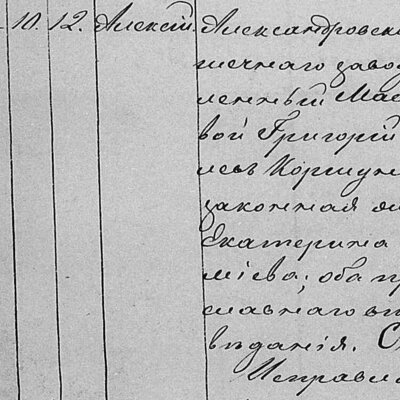 10. 12. Алексій. Александровска
шечнаго завод
ленный Мас
вой Григорій
левъ Коршун
законная
Екатерина
міева; оба пр
славнаго в
ѣданія.
Исправл